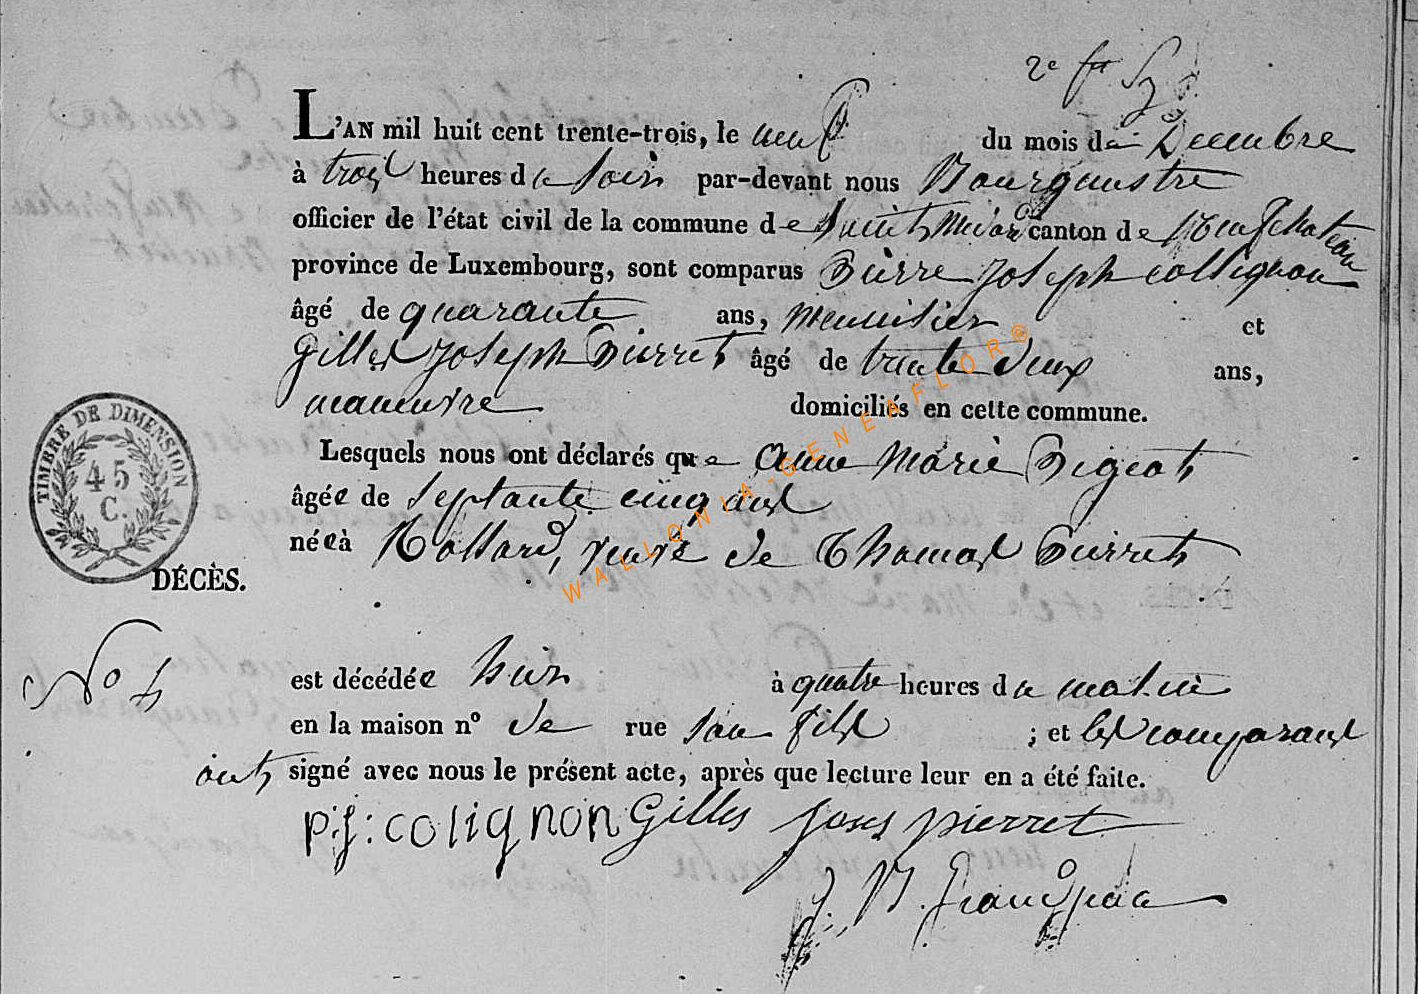 2e
L'AN mil huit cent trente-trois, le neuf du mois de Decembre
à trois heures du soir par-devant nous Bourgmestre
officier de l'état civil de la commune de Saint Medard canton de Neufchateau
province de Luxembourg, sont comparus Pierre Joseph Collignon
âgé de quarante ans, menuisier et
Gilles Joseph Pierret âgé de trente deux ans,
manœuvre domiciliés en cette commune.
Lesquels nous ont déclarés que Anne Marie Pigeot
âgée de septante cinq ans
née à Nollard, veuve de Thomas Pierret
TIMBRE DE DIMENSION
45
C.
DÉCÈS.
No 4
est décédée hier à quatre heures du matin
en la maison no de rue son fils ; et les comparans
ont signé avec nous le présent acte, après que lecture leur en a été faite.
p:j: colignon Gilles Joseph pierret
J. N.
WALLONIA@GENEAFLOR®